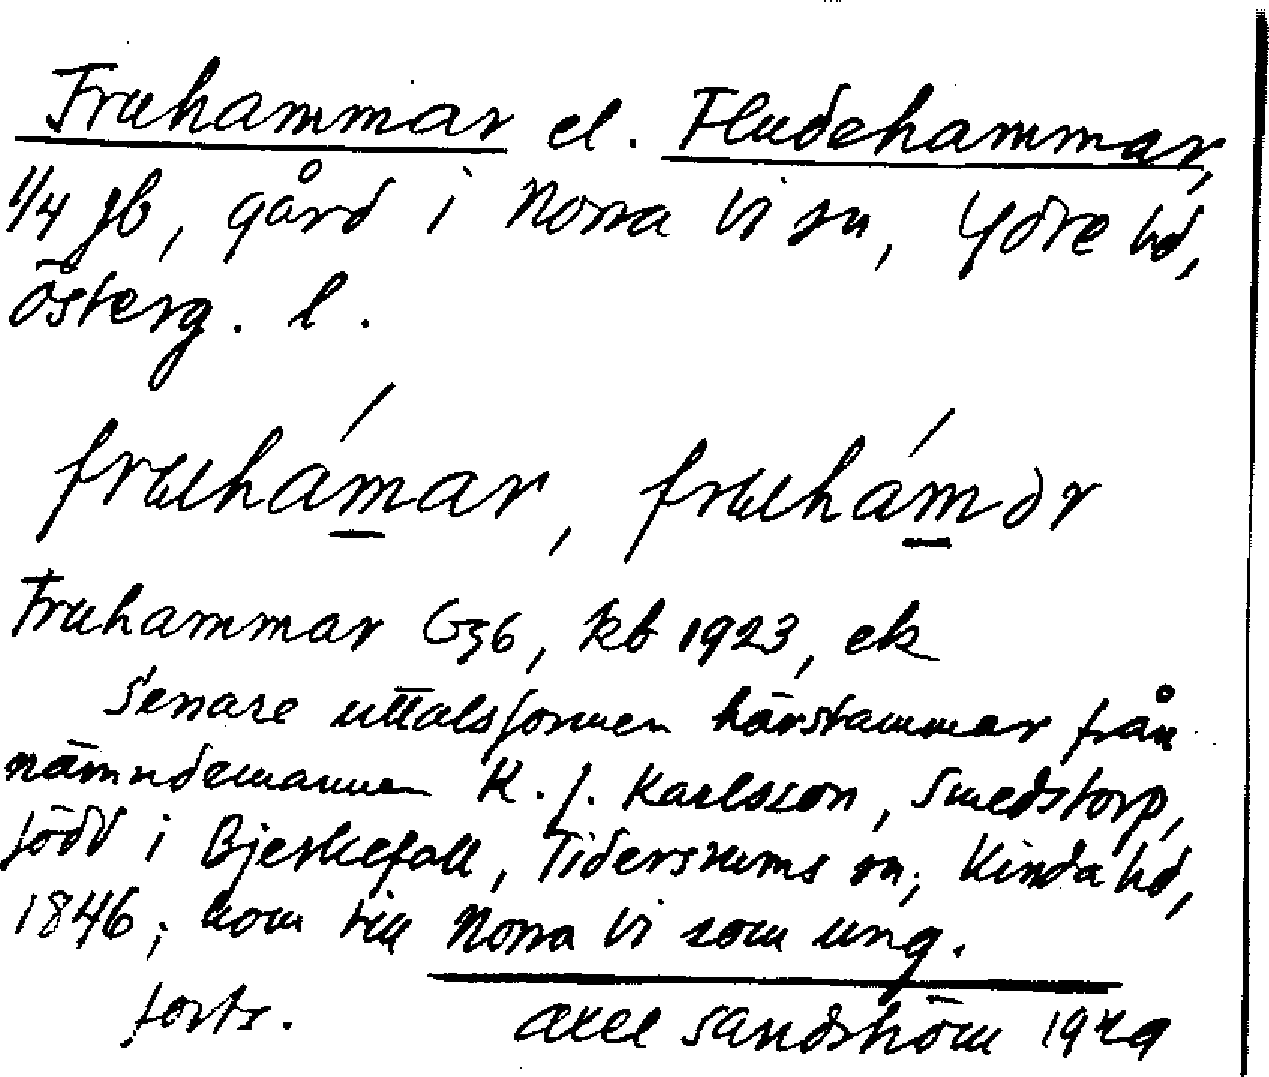 Fruhammar el. Fludehammar,
1/4 jb, gård i Norra Vi sn, Ydre hd,
Österg. l.
fruhámar, fruhámər
Fruhammar Gz6, kb 1923, ek
Senare uttalsformen härstammar från
nämndemannen K. J. Karlsson, Smedstorp,
född i Bjerkefall, Tidersrums sn, Kinda hd,
1846; kom till Norra Vi som ung.
forts. Axel Sandström 1929